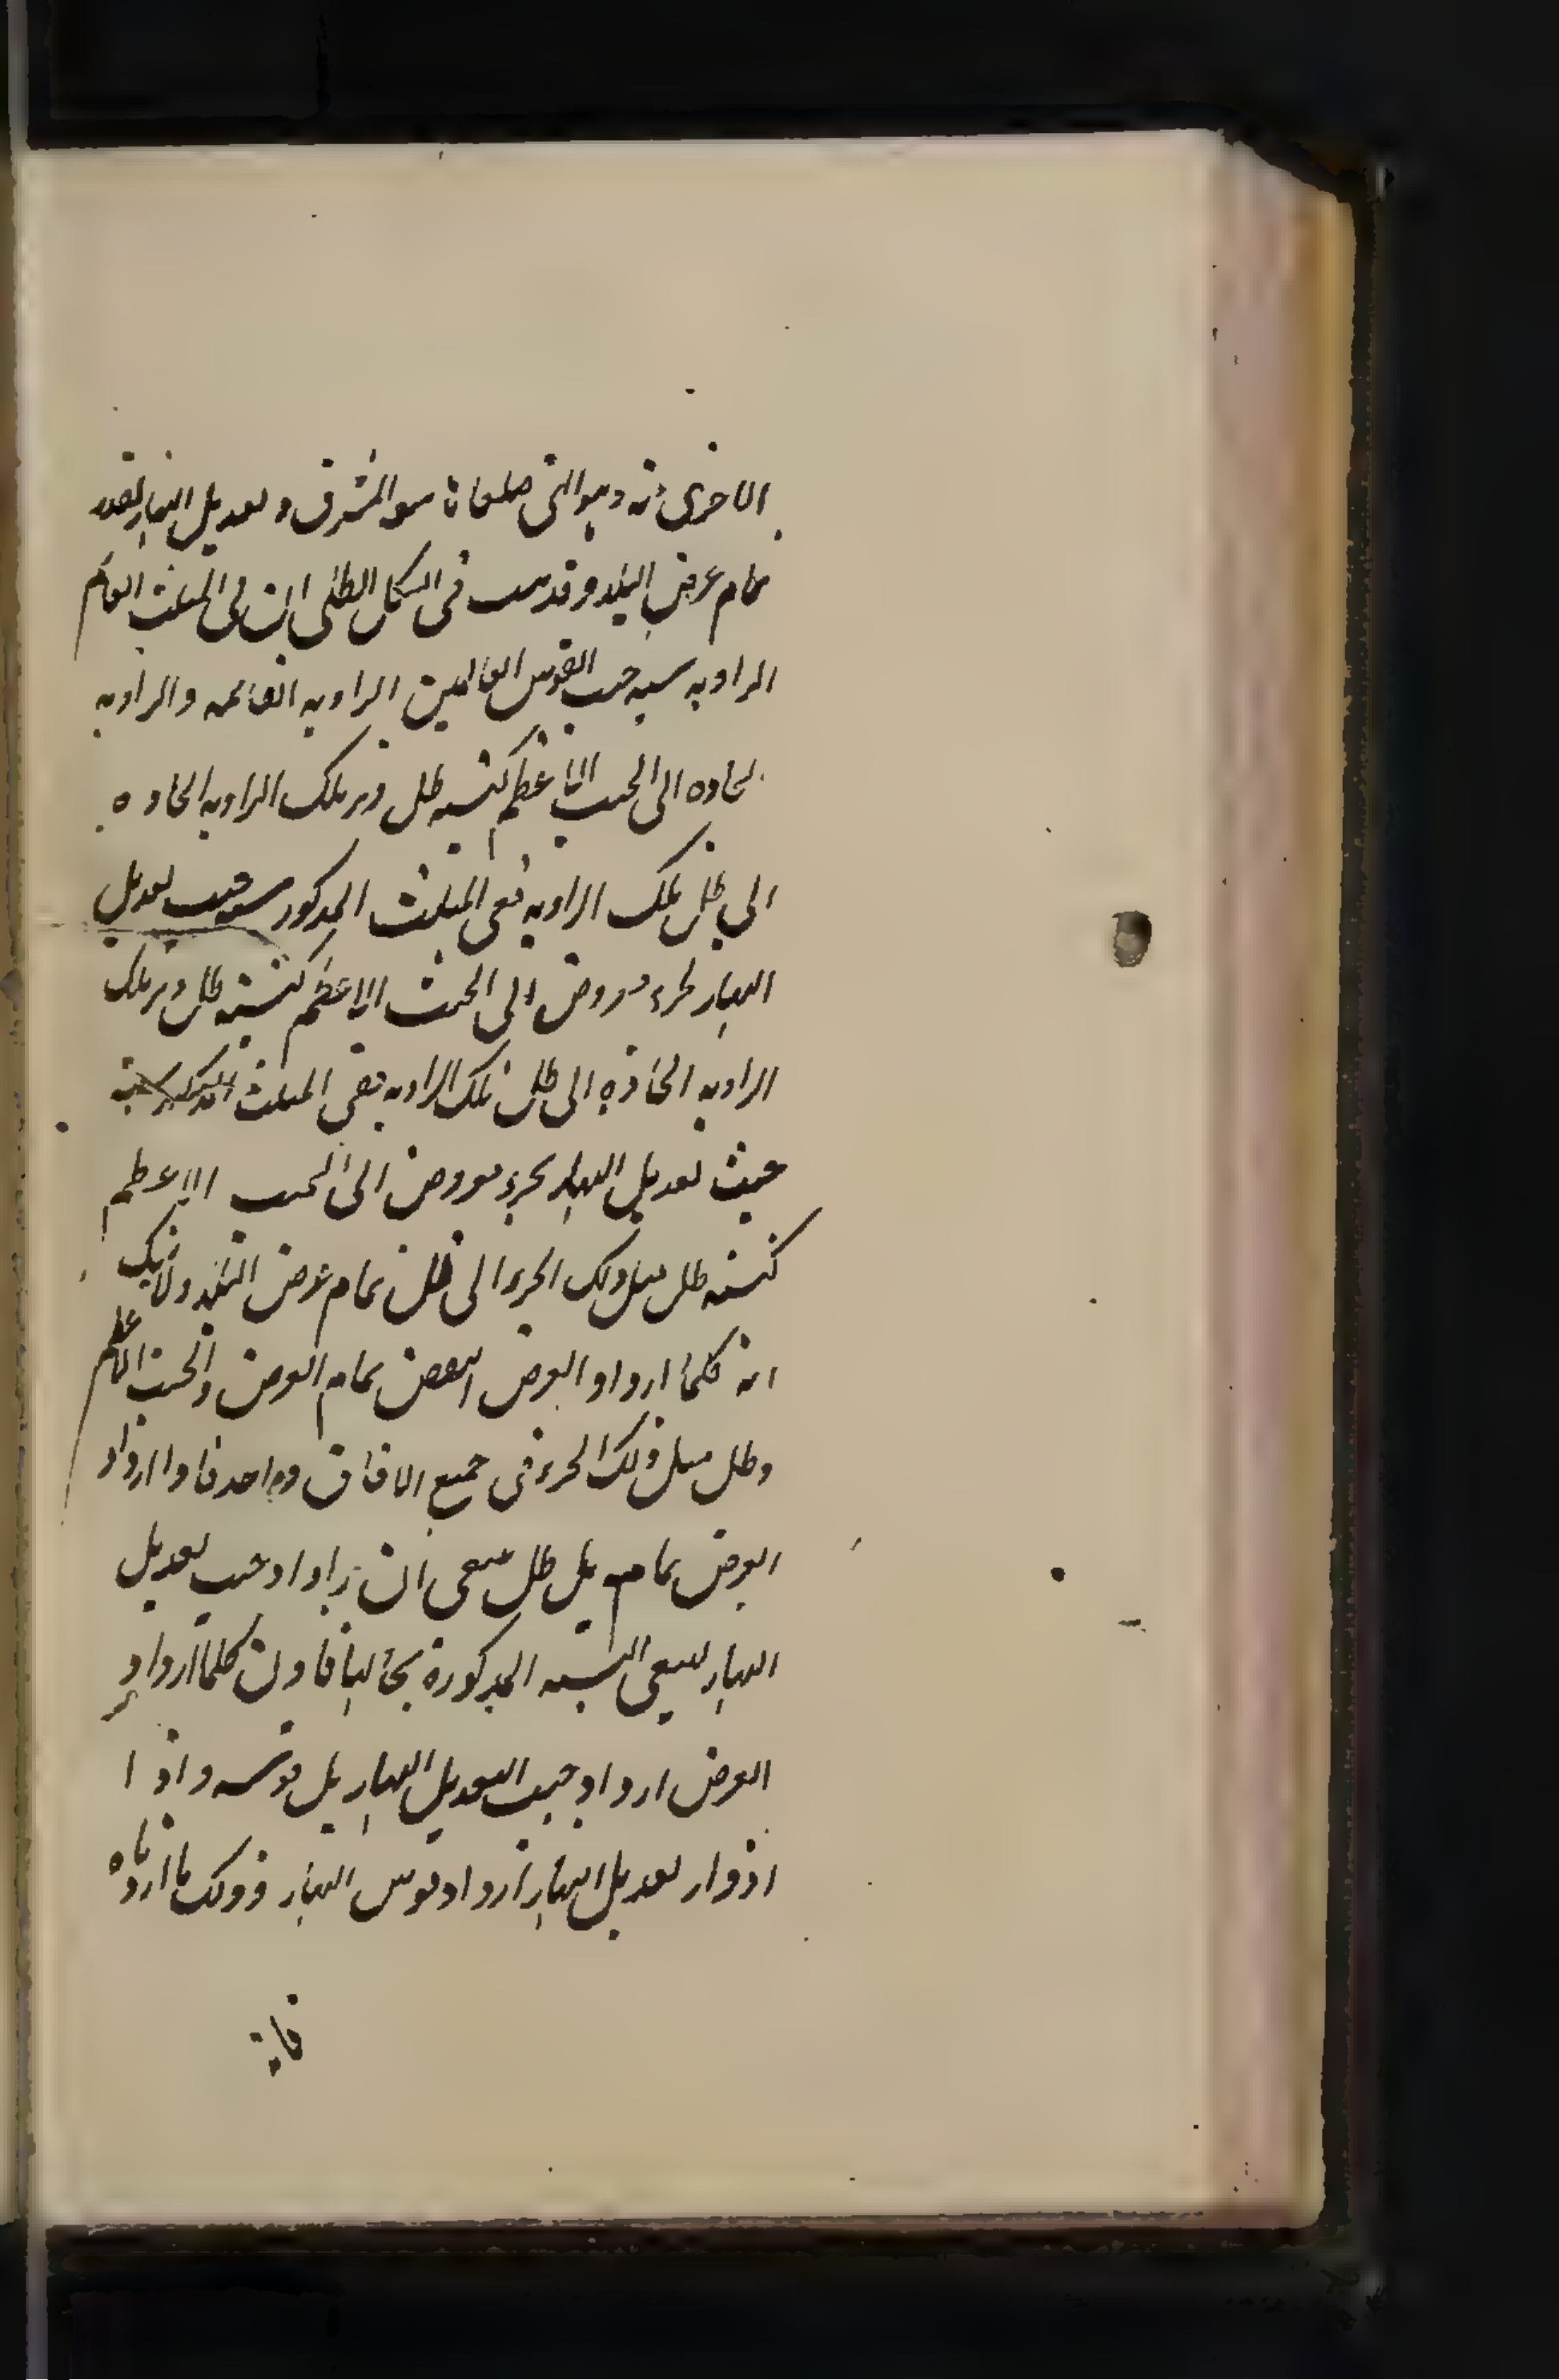 الاخرى منه وهو التي ضلعاها سو المشرق و تعديل النهار بقدر
تمام عرض البلد و قد ثبت في الشكل الظلي ان في المثلث القائم
الزاويه نسبه جيب القوس الفاصل بين الزاويه القائمه والزاويه
الحاده الى الجيب الاعظم كنسبه ظل وتر تلك الزاويه الحاده
الى ظل تلك الزاويه ففي المثلث المذكور نسبه جيب تعديل
النهار لجزء مفروض الى الجيب الاعظم كنسبة ظل وتر تلك
الزاويه الحاده الى ظل تلك الزاويه ففي المثلث المذكور نسبة
جيب تعديل النهار لجزء مفروض الى الجيب الاعظم
كنسبه ظل ميل ذلك الجزء الى ظل تمام عرض البلد ولا شك
انه كلما ازداد العرض انتقص تمام العرض والجيب الاعظم
وظل ميل ذلك الجزء في جميع الافاق واحد فاذا ازداد
العرض تمام بل ظل ينبغي ان يزداد جيب تعديل
النهار ليبقى النسبه المذكورة بحالها فاذن كلما ازداد
العرض ازداد جيب التعديل النهار بل قوسه واذا
ازداد تعديل النهار ازداد قوس النهار وذلك ما اردناه
فانه